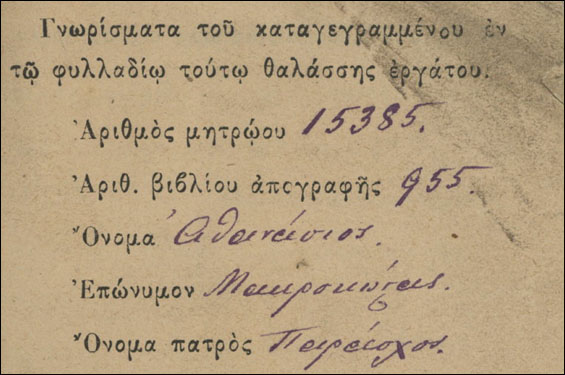 Γνωρίσματα τοῦ καταγεγραμμένου ἐν
τῷ φυλλαδίῳ τούτῳ θαλάσσης ἐργάτου.
Ἀριθμὸς μητρῴου 15385.
Ἀριθ. βιβλίου ἀπογραφῆς 955.
Ὄνομα Ἀθανάσιος.
Ἐπώνυμον Μακροκώστας.
Ὄνομα πατρὸς